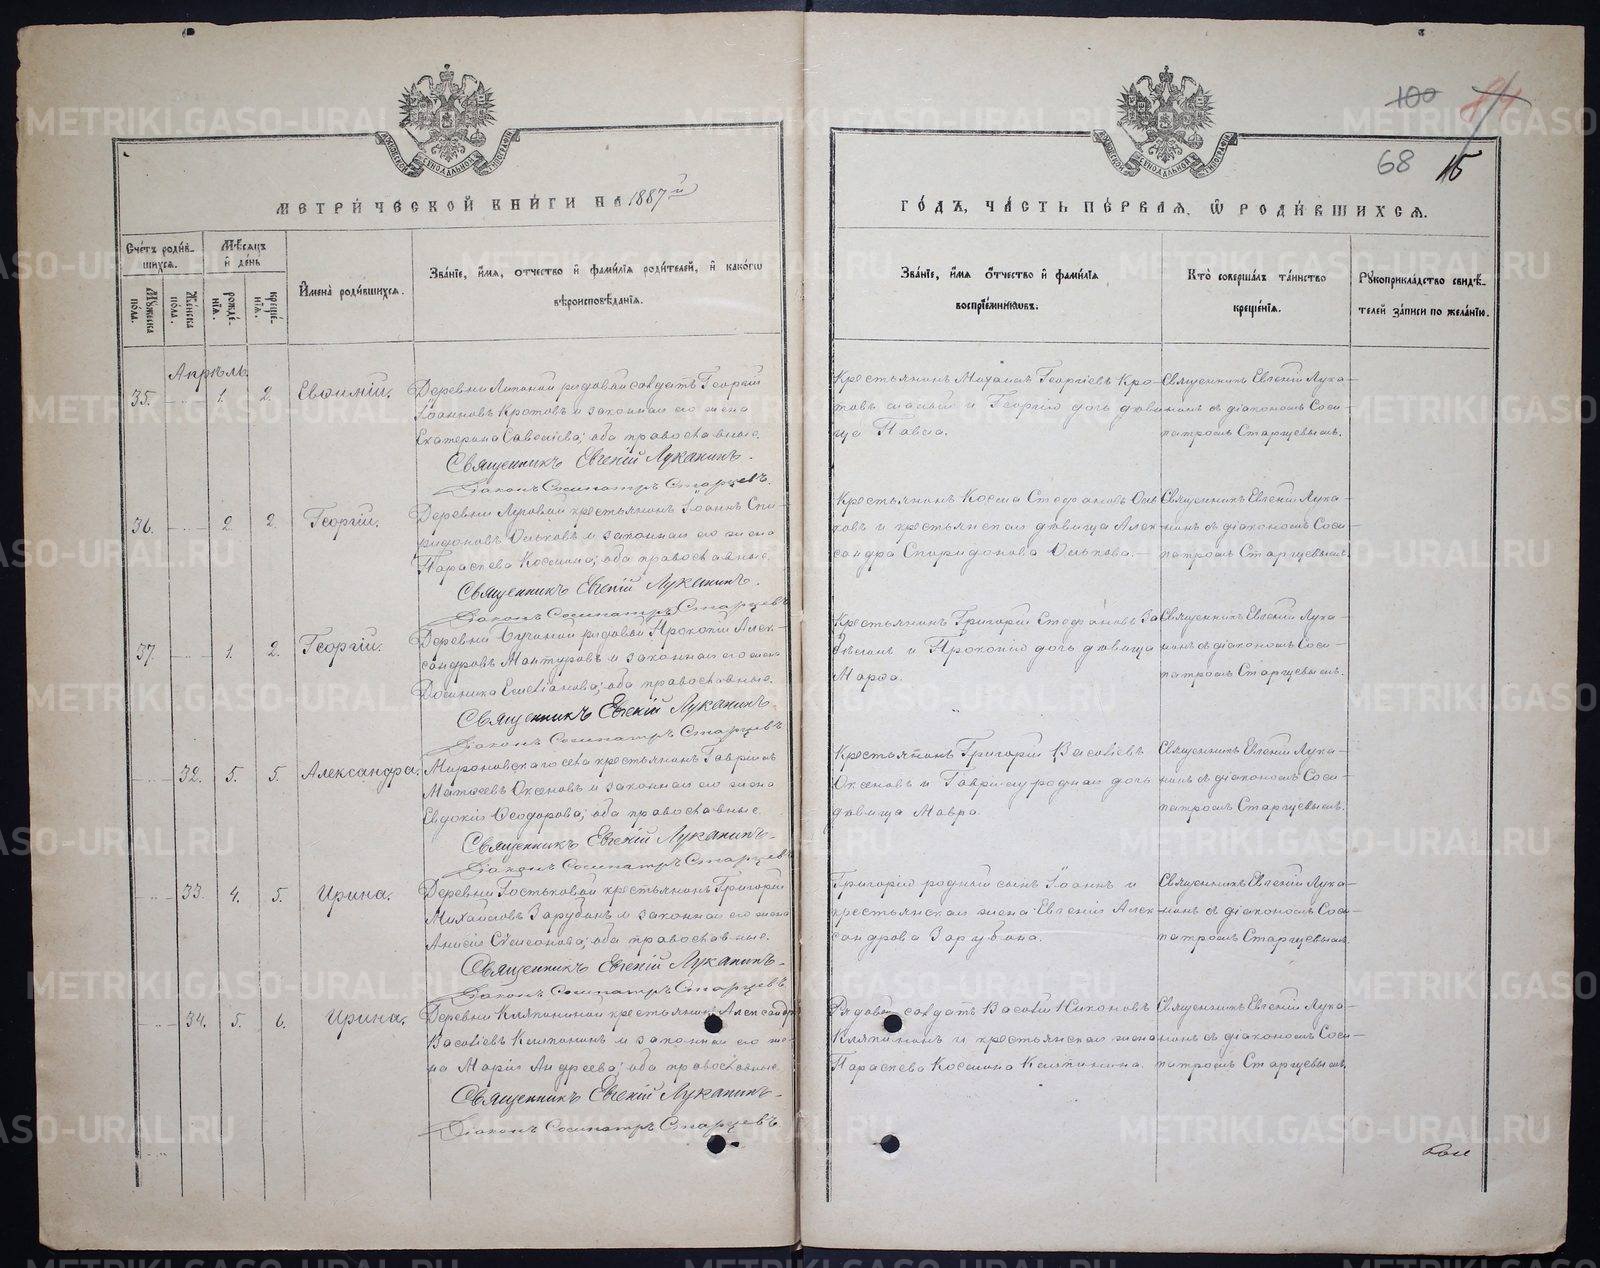 МЕТРИЧЕСКОЙ КНИГИ НА 1887й
ГОДЪ, ЧАСТЬ ПЕРВАЯ, Ѡ РОДИВШИХСЯ.
100
68
15
Счетъ родив-
шихся.
Мужеска пола.
Женска пола.
Мѣсяцъ
и день
рожде-
нія.
креще-
нія.
Имена родившихся.
Званіе, имя, отчество и фамилія родителей, и какогѡ
вѣроисповѣданія.
Званіе, имя отчество и фамилія
воспріемникѡвъ.
Кто совершалъ таинство
крещенія.
Рꙋкоприкладство свидѣ-
телей записи по желанію.
Апрѣль.
35. 1. 2. Евѳимій.
Деревни рядовой солдатъ Георгій
Іоанновъ Кротовъ и законная его жена
Екатерина Савельева; оба православные.
Священникъ Евгеній Луканинъ.
Діаконъ Сосипатръ Старцевъ.
Крестьянинъ Михаилъ Георгіевъ Кро-
товъ и Георгія дочь дѣви-
ца
Священникъ Евгеній Лука-
нинъ съ діакономъ Соси-
патромъ Старцевымъ.
36. 2. 2. Георгій.
Деревни Луговой крестьянинъ Іоаннъ Спи-
ридоновъ Ольковъ и законная его жена
Параскева Космина; оба православные.
Священникъ Евгеній Луканинъ.
Діаконъ Сосипатръ Старцевъ
Крестьянинъ Косма Стефановъ Оль-
ковъ и крестьянская дѣвица Алек-
сандра Спиридонова Олькова.
Священникъ Евгеній Лука-
нинъ съ діакономъ Соси-
патромъ Старцевымъ.
37. 1. 2. Георгій.
Деревни рядовой Прокопій Алек-
сандровъ Мантуровъ и законная его жена
Домника Емеліанова; оба православные.
Священникъ Евгеній Луканинъ.
Діаконъ Сосипатръ Старцевъ
Крестьянинъ Григорій Стефановъ
и Прокопія дочь дѣвица
Марѳа.
Священникъ Евгеній Лука-
нинъ съ діакономъ Соси-
патромъ Старцевымъ.
32. 5. 5. Александра.
Мироновскаго села крестьянинъ Гавріилъ
Матѳеевъ Оксеновъ и законная его жена
Евдокія Ѳеодорова; оба православные.
Священникъ Евгеній Луканинъ.
Діаконъ Сосипатръ Старцевъ
Крестьянинъ Григорій Васильевъ
Оксеновъ и Гавріилу родная дочь
дѣвица Мавра.
Священникъ Евгеній Лука-
нинъ съ діакономъ Соси-
патромъ Старцевымъ.
33. 4. 5. Ирина.
Деревни Гостьковой крестьянинъ Григорій
Михайловъ Зарубинъ и законная его жена
Анисія Сѵмеонова; оба православные.
Священникъ Евгеній Луканинъ.
Діаконъ Сосипатръ Старцевъ
Григорію родный сынъ Іоаннъ и
крестьянская жена Евгенія Алек-
сандрова Зарубина.
Священникъ Евгеній Лука-
нинъ съ діакономъ Соси-
патромъ Старцевымъ.
34. 5. 6. Ирина.
Деревни Кляпининой крестьянинъ Александръ
Васильевъ Кляпининъ и законная его же-
на Марія Андреева; оба православные.
Священникъ Евгеній Луканинъ.
Діаконъ Сосипатръ Старцевъ
Рядовой солдатъ Василій Никоновъ
Кляпининъ и крестьянская жена
Параскева Космина Кляпинина.
Священникъ Евгеній Лука-
нинъ съ діакономъ Соси-
патромъ Старцевымъ.
METRIKI.GASO-URAL.RU